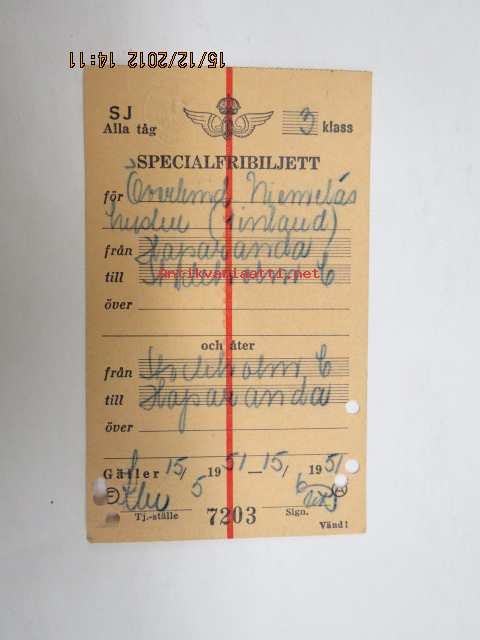 15/12/2012 14:11
SJ
Alla tåg
3 klass
SPECIALFRIBILJETT
för Överlind Niemeläs
hustru (Finland)
från Haparanda
till Stockholm C
Antikvariaatti.net
över
och åter
från Stockholm C
till Haparanda
över
Gäller 15/5 1951—15/6 1951
Tj.-ställe 7203 Sign.
Vänd!